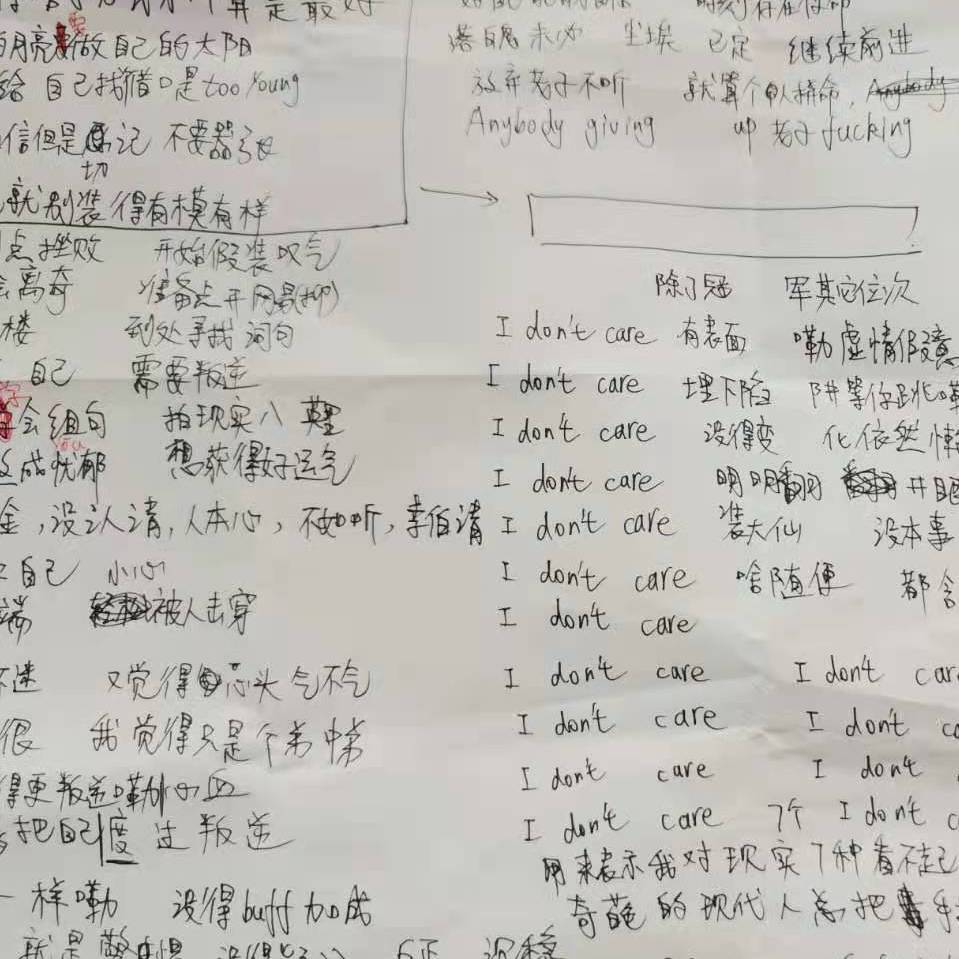 月亮要做自己的太阳
给自己找借口是too Young
信但是切记 不要嚣张
就别装得有模有样
点挫败 开始假装叹气
离奇 准备点开网易(抑)
楼 到处寻找词句
自己 需要叛逆
学会组句 拍现实八英里
成忧郁 想获得好运气
金,没认清,人本心,不如听,李伯清
自己 小心
端 被人击穿
不迷 又觉得心头气不气
很 我觉得只是个弟中弟
得更叛逆嘞心血
把自己度过叛逆
一样嘞 没得buff加成
就是
落魄未必 尘埃已定 继续前进
放弃老子不听 就算个人拼命, Anybody
Anybody giving up 老子fucking
除了冠 军其它位次
I don't care 有表面 嘞虚情假意
I don't care 埋下陷 阱等你跳嘞
I don't care 没得变 化依然
I don't care 明明翻
I don't care 装大仙 没本事
I don't care 啥随便 都
I don't care
I don't care I don't car
I don't care I don't c
I don't care I don't
I don't care 7个 I don't c
用来表示我对现实7种看不起
奇葩的现代人总把手